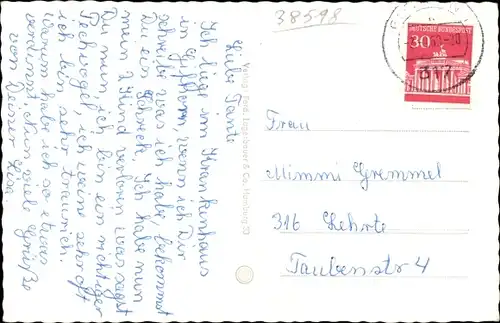 38598
Liebe Tante
Ich liege im Krankenhaus
in Gifhorn, wenn ich Dir
schreibe was ich habe, bekommst
Du ein Schreck. Ich habe nun
mein 2 Kind verloren was sagst
Du nun ich bin ein richtiger
Pechvogel, ich weine sehr oft
ich bin sehr traurich.
Warum habe ich so etwas
verdinnt. Nun viele Grüße
von Deiner Lisa.
Hamburg 73
DEUTSCHE BUNDESPOST
30
317
Frau
Mimmi Gremmel
316 Lehrte
Taubenstr 4